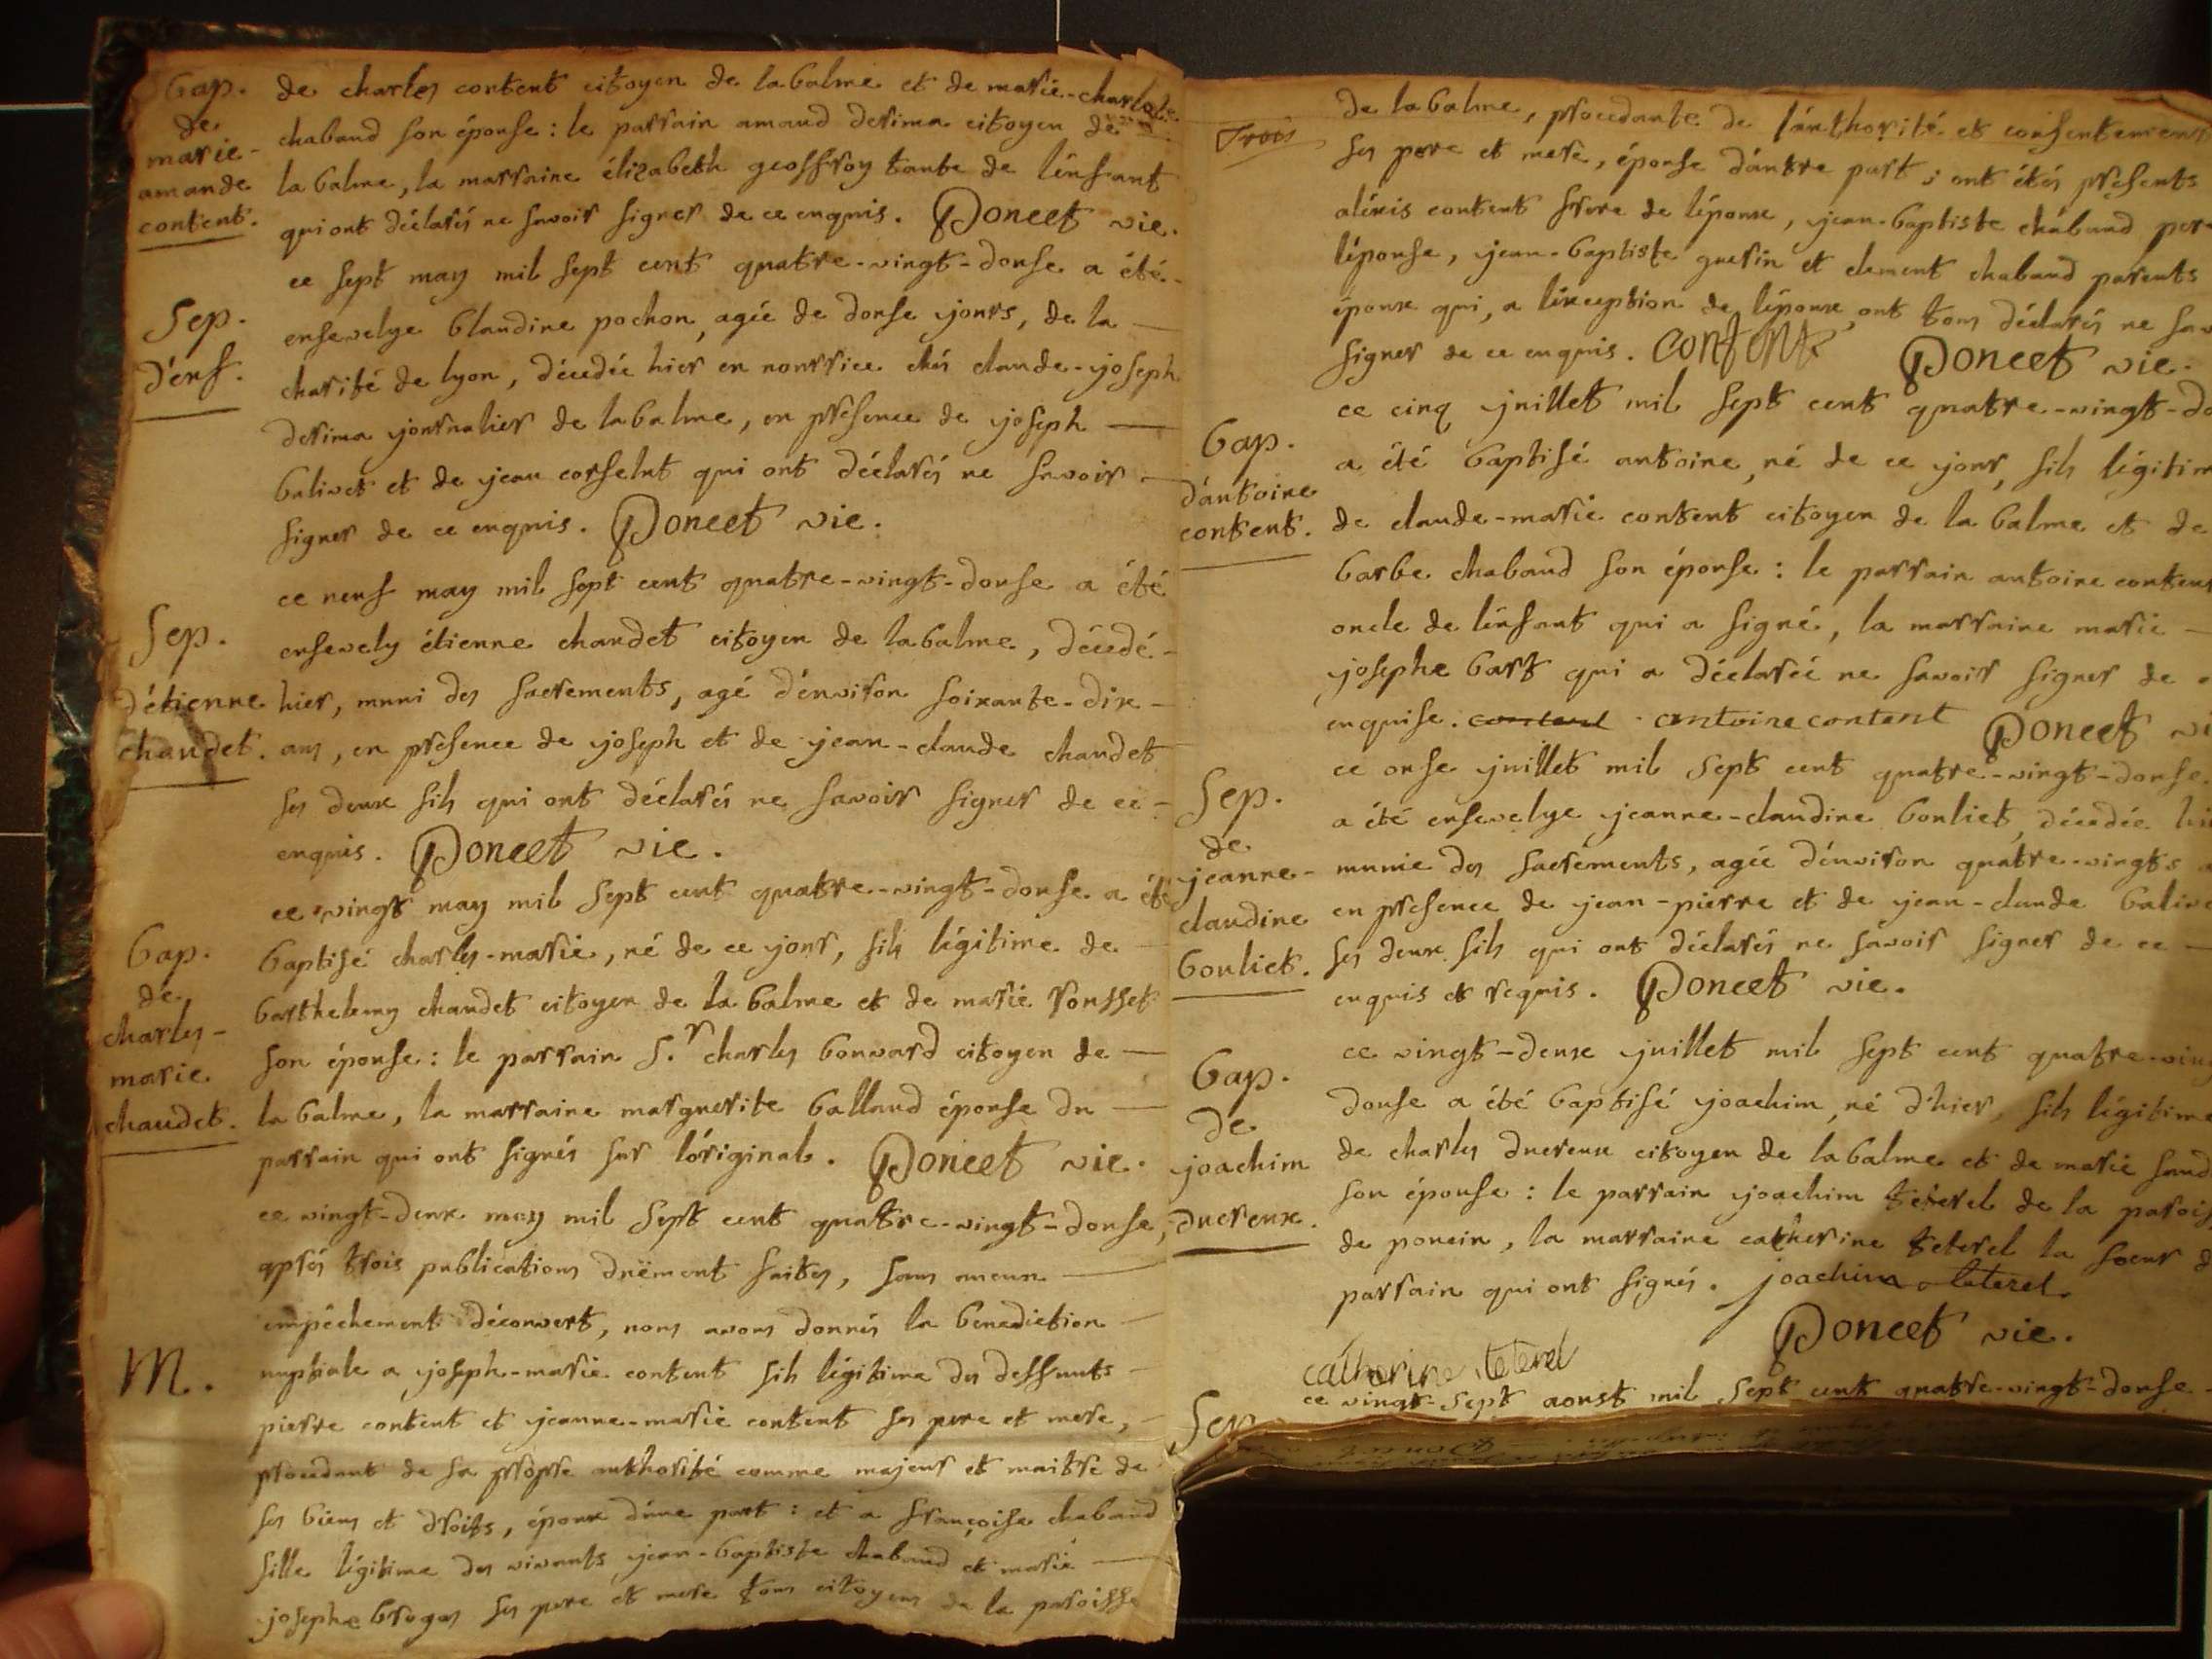 Bap.
de
marie-
amande
content.
de charles content citoyen de la balme et de marie-charlote
chaband son épouse : le parrain amand derima citoyen de
la balme, la marraine élizabeth geoffroy tante de l'énfant
qui ont déclarés ne savoir signer de ce enquis. Poncet vic.
Sep.
d'enf.
ce sept may mil sept cent quatre-vingt-douse a été
ensevelye blandine pochon, agée de douse jours, de la
charité de lyon, décedée hier en nourrice chés claude-joseph
derima journalier de la balme, en présence de joseph
balivet et de jean corselut qui ont déclarés ne savoir
signer de ce enquis. Poncet vic.
Sep.
d'étienne
chaudet.
ce neuf may mil sept cent quatre-vingt-douse a été
ensevely étienne chaudet citoyen de la balme, décedé
hier, muni des sacrements, agé d'énviron soixante-dix
ans, en présence de joseph et de jean-claude chaudet
ses deux fils qui ont déclarés ne savoir signer de ce
enquis. Poncet vic.
Bap.
de
charles-
marie
chaudet.
ce vingt may mil sept cent quatre-vingt-douse a été
baptisé charles-marie, né de ce jour, fils légitime de
barthelemy chaudet citoyen de la balme et de marie rousset
son épouse : le parrain S.r charles bonnard citoyen de
la balme, la marraine marguerite balland épouse du
parrain qui ont signés sur l'original. Poncet vic.
M.
ce vingt-deux may mil sept cent quatre-vingt-douse,
après trois publications düement faites, sans aucun
empêchement découvert, nous avons donnés la benediction
nuptiale a joseph-marie content fils légitime des deffunts
pierre content et jeanne-marie content ses pere et mere,
procedant de sa propre authorité comme majeur et maitre de
ses biens et droits, époux d'une part : et a françoise chaband
fille légitime des vivants jean-baptiste chaband et marie
josephe broges ses pere et mere tous citoyens de la paroisse
Trois
de la balme, procedante de l'authorité et consentement
ses pere et mere, épouse d'autre part ; ont étés présents
aléxis content frere de l'époux, jean-baptiste chaband pere
l'épouse, jean-baptiste guerin et clement chaband parents
époux qui, a l'éxception de l'époux, ont tous déclarés ne sav
signer de ce enquis. content Poncet vic.
Bap.
d'antoine
content.
ce cinq juillet mil sept cent quatre-vingt-do
a été baptisé antoine, né de ce jour, fils légitim
de claude-marie content citoyen de la balme et de
barbe chaband son épouse : le parrain antoine content
oncle de l'énfant qui a signé, la marraine marie
josephe bart qui a déclarée ne savoir signer de
enquise. content antoine content Poncet vi
Sep.
de
jeanne-
claudine
bouliet.
ce onse juillet mil sept cent quatre-vingt-douse
a été ensevelye jeanne-claudine bouliet, décedée hi
munie des sacrements, agée d'énviron quatre-vingts a
en présence de jean-pierre et de jean-claude balive
ses deux fils qui ont déclarés ne savoir signer de ce
enquis et requis. Poncet vic.
Bap.
de
joachim
ducreux.
ce vingt-deux juillet mil sept cent quatre-ving
douse a été baptisé joachim, né d'hier, fils légitime
de charles ducreux citoyen de la balme et de marie sand
son épouse : le parrain joachim teterel de la parois
de poncin, la marraine catherine teterel la soeur d
parrain qui ont signés. joachim teterel
Poncet vic.
catherine teterel
Sep
ce vingt-sept aoust mil sept cent quatre-vingt-douse